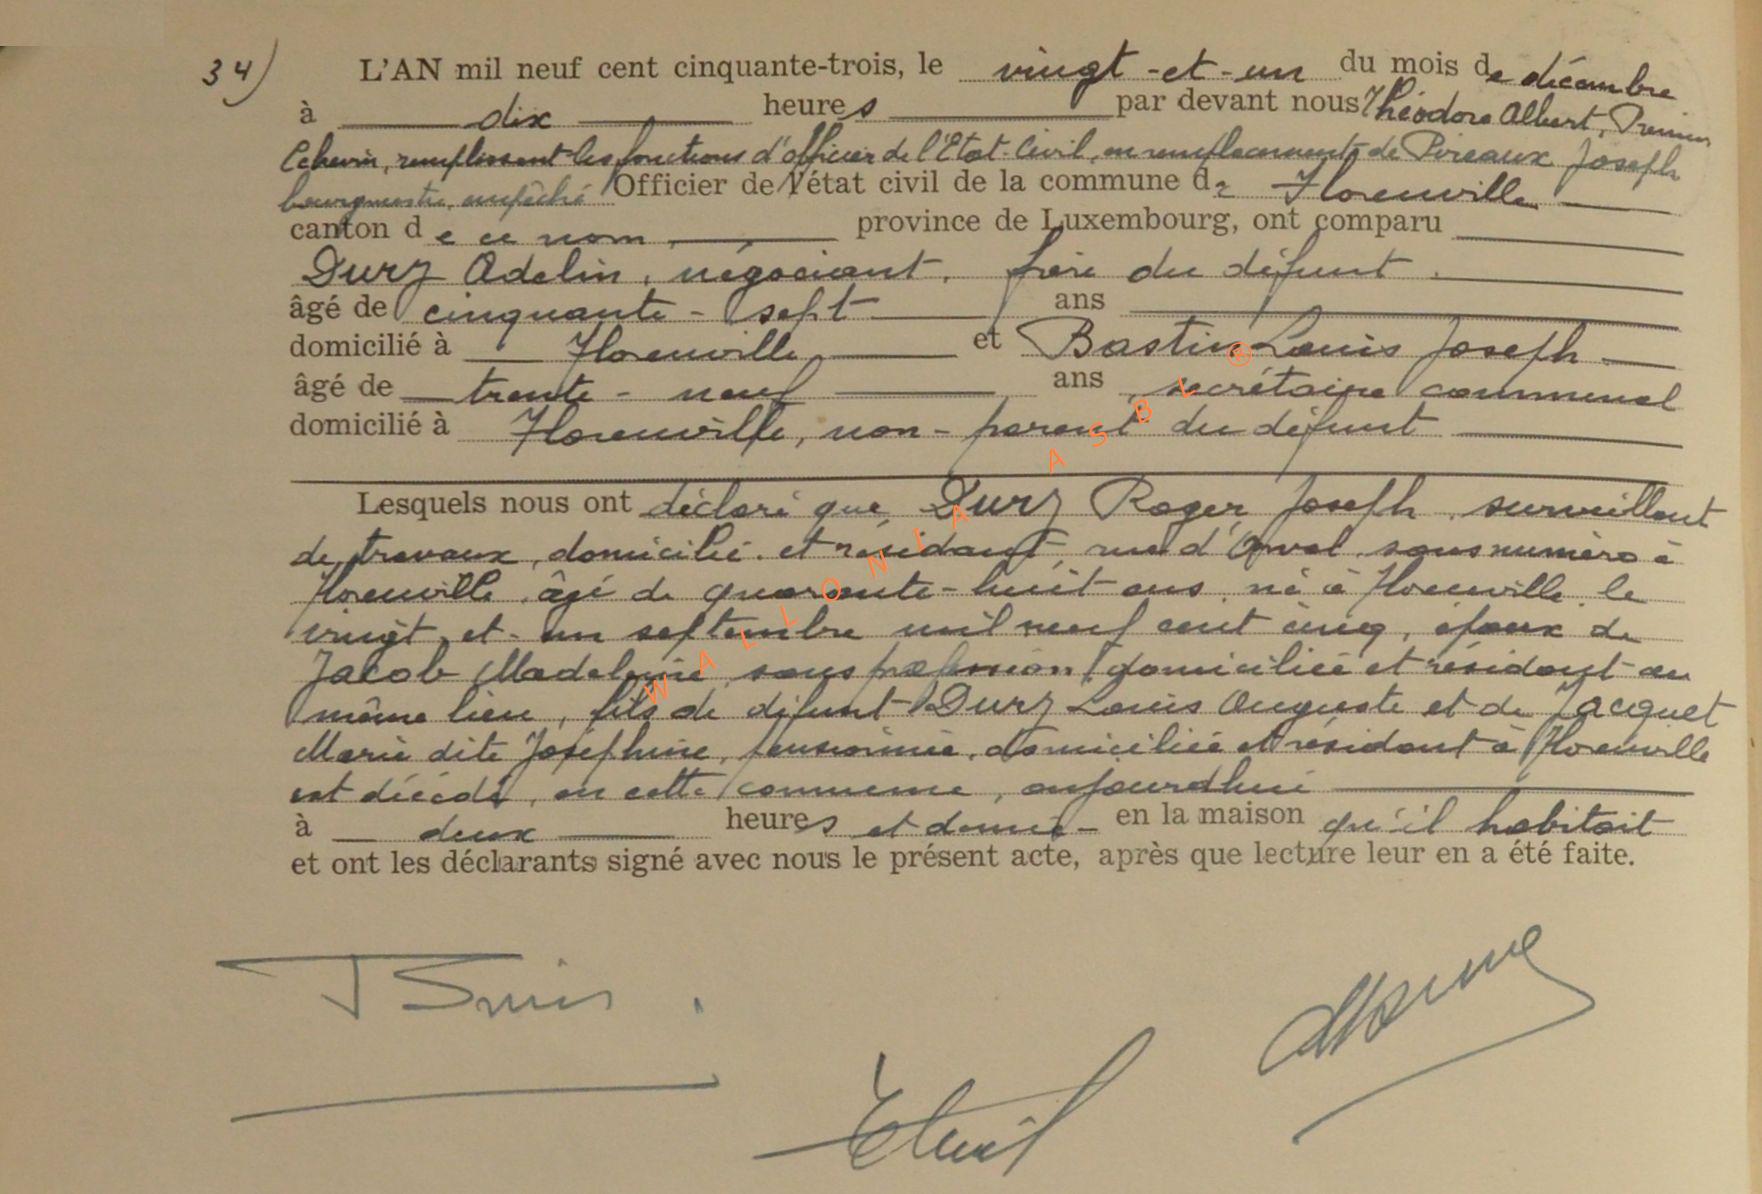 34) L'AN mil neuf cent cinquante-trois, le vingt-et-un du mois de décembre
à dix heures par devant nous Théodore Albert, Premier
Echevin, remplissant les fonctions d'officier de l'Etat-Civil, en remplacement de Pireaux Joseph
bourgmestre empêché Officier de l'état civil de la commune de Florenville
canton de ce nom, province de Luxembourg, ont comparu
Durz Adelin, négociant, frère du défunt.
âgé de cinquante-sept ans
domicilié à Florenville, et Bastin Louis Joseph
âgé de trente-neuf ans, secrétaire communal
domicilié à Florenville, non-parent du défunt
Lesquels nous ont déclaré que, Durz Roger Joseph, surveillant
de travaux, domicilié et résidant, rue d'Orval sans numéro à
Florenville, âgé de quarante-huit ans, né à Florenville, le
vingt-et-un septembre mil neuf cent cinq, époux de
Jacob Madeleine, sans profession, domiciliée et résidant au
même lieu, fils de défunt Durz Louis Auguste et de Jacquet
Marie dite Joséphine, pensionnée, domiciliée et résidant à Florenville
est décédé, en cette commune, aujourd'hui
à deux heures et demie en la maison qu'il habitait
et ont les déclarants signé avec nous le présent acte, après que lecture leur en a été faite.
WALLONIA ASBL ®